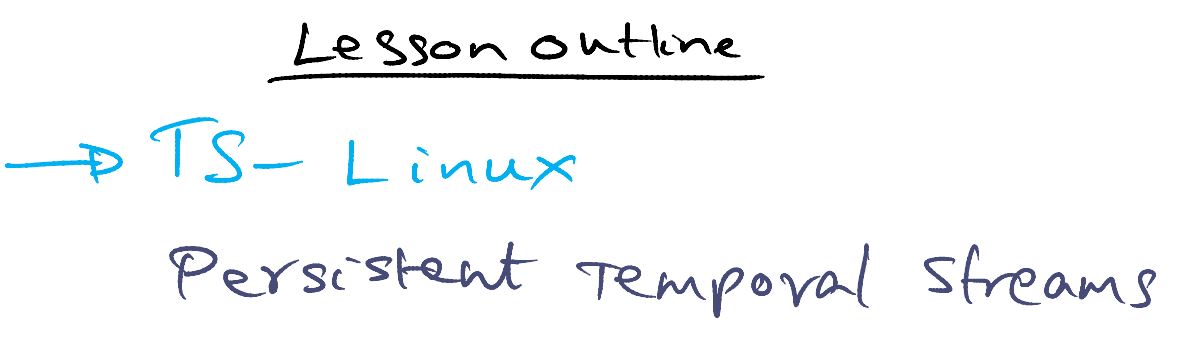 Lesson outline
→ TS-Linux
Persistent Temporal Streams